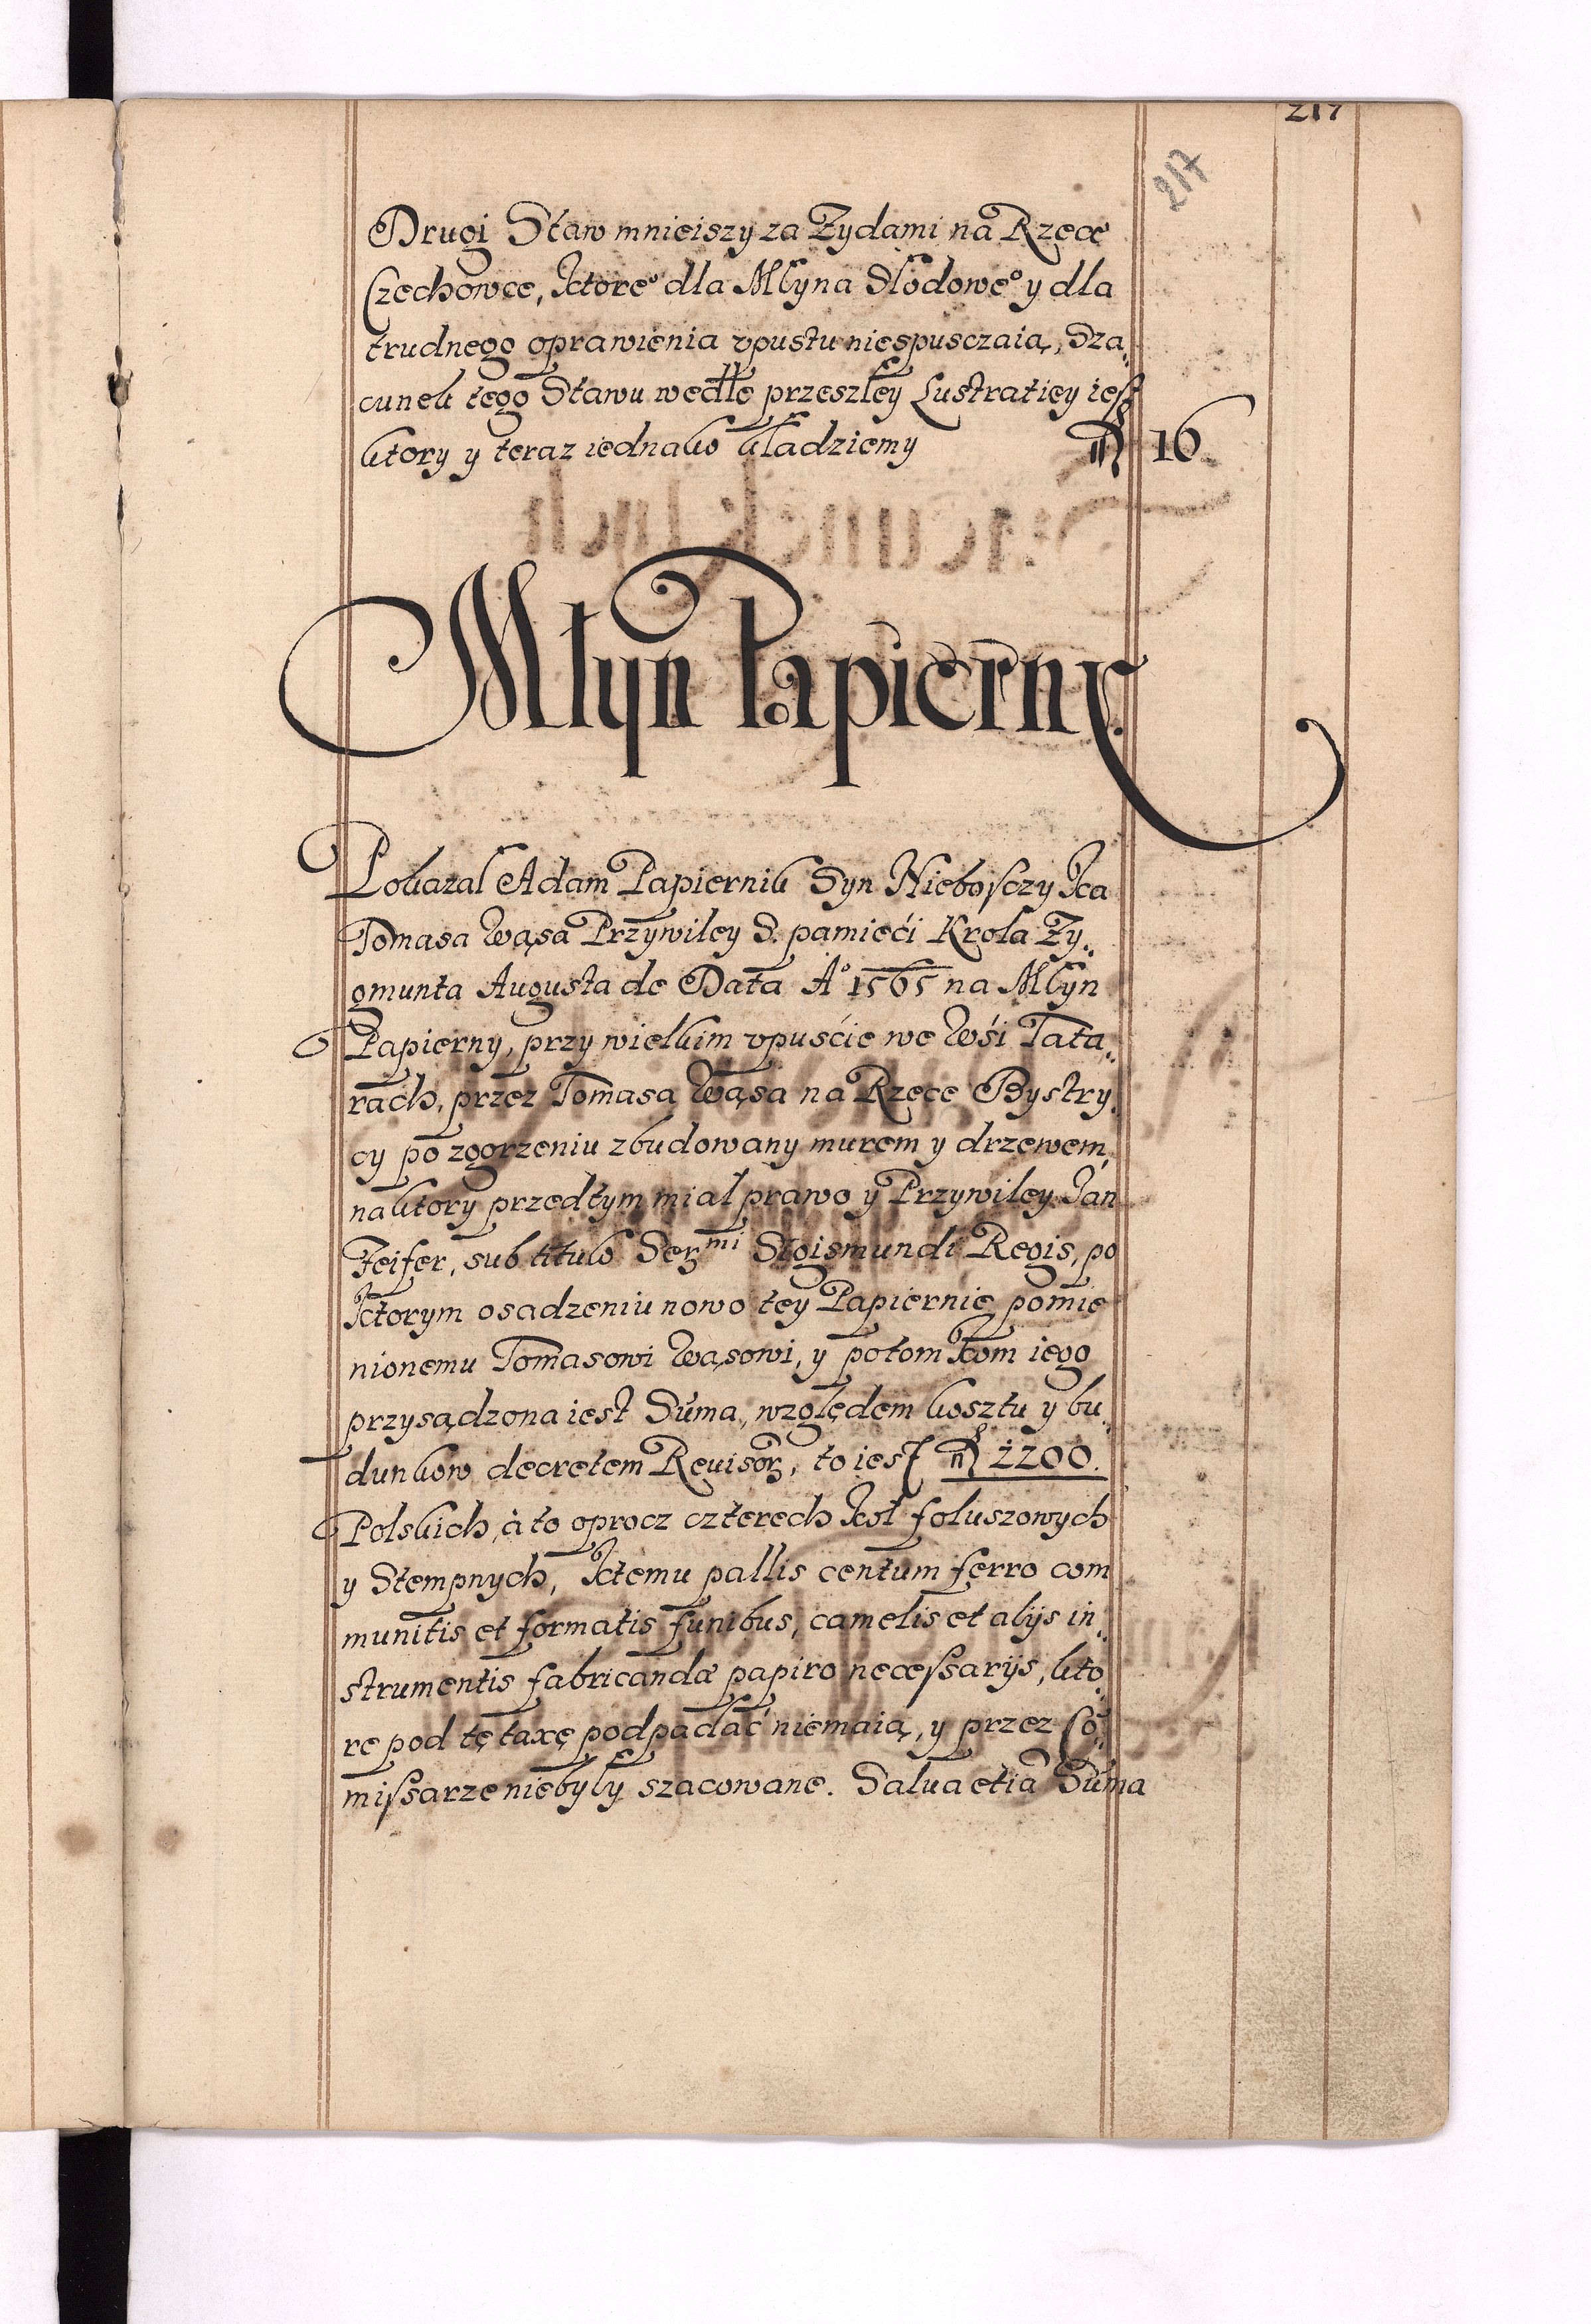 217
217
Drugi Staw mnieiszy za Zydami na Rzęce
Czechowce, ktore° dla Młyna Słodowe° y dla
trudnego oprawienia vpustu niespusczaią, Sza„
cunek tego Stawu wedłe przeszłey Lustratiey iest
ktory y teraz iednako kładziemy 16
Młyn Papierny.
Pokazal Adam Papiernik Syn Nieboſczyka
Tomasa Wąsa Przywiley S. pamięći Krola Zy„
gmunta Augusta de Data A° 1565 na Młyn
Papierny, przy wielkim vpuśćie we Wśi Tata„
rach, przez Tomasa Wąsa na Rzęce Bystry„
cy po zgorzeniu zbudowany murem y drzewem,
na ktory przedtym miał prawo y Przywiley Jan
Feifer, sub titulo Ser mi Sigismundi Regis, po
ktorym osadzeniu nowo tey Papiernie pomie
nionemu Tomasowi Wąsowi, y potomkom iego
przysądzona iest Suma, względem kosztu y bu„
dunkow decretem Reuisor, to iest 2200.
Polskich, à to oprocz czterech koł foluszowych
y Stempnych, ktemu pallis centum ferro com
munitis et formatis funibus, camelis et alijs in„
strumentis fabricandæ papiro neceſsarijs, kto„
re pod tę taxę podpadać niemaią, y przez Co„
miſsarze niebyły szacowane. Salua etiã Suma